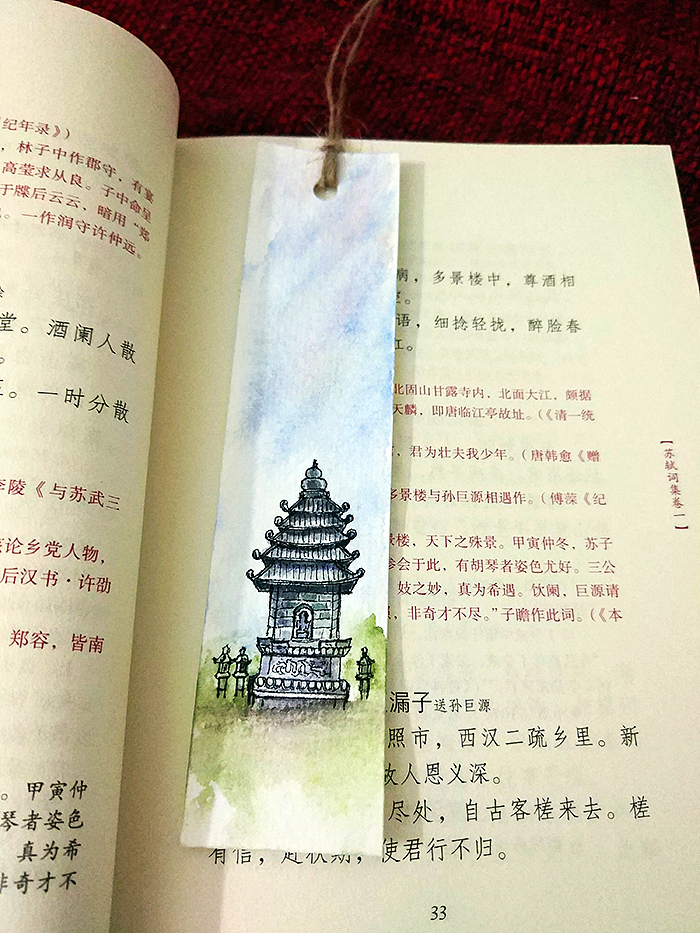 纪年录》）
，林子中作郡守，有宴
高莹求从良。子中命呈
于牒后云云，暗用“郑
。一作润守许仲远。
堂。酒阑人散
。一时分散
李陵《与苏武三
论乡党人物，
后汉书·许劭
郑容，皆南
。甲寅仲
琴者姿色
真为希
非奇才不
病，多景楼中，尊酒相
语，细捻轻拢，醉脸春
江。
北固山甘露寺内，北面大江，颇据
天麟，即唐临江亭故址。（《清一统
，君为壮夫我少年。（唐韩愈《赠
多景楼与孙巨源相遇作。（傅藻《纪
景楼，天下之殊景。甲寅仲冬，苏子
参会于此，有胡琴者姿色尤好。三公
妓之妙，真为希遇。饮阑，巨源请
，非奇才不尽。”子瞻作此词。（《本
【苏轼词集卷一】
漏子 送孙巨源
照市，西汉二疏乡里。新
故人恩义深。
尽处，自古客槎来去。槎
有信，赴秋期，使君行不归。
33